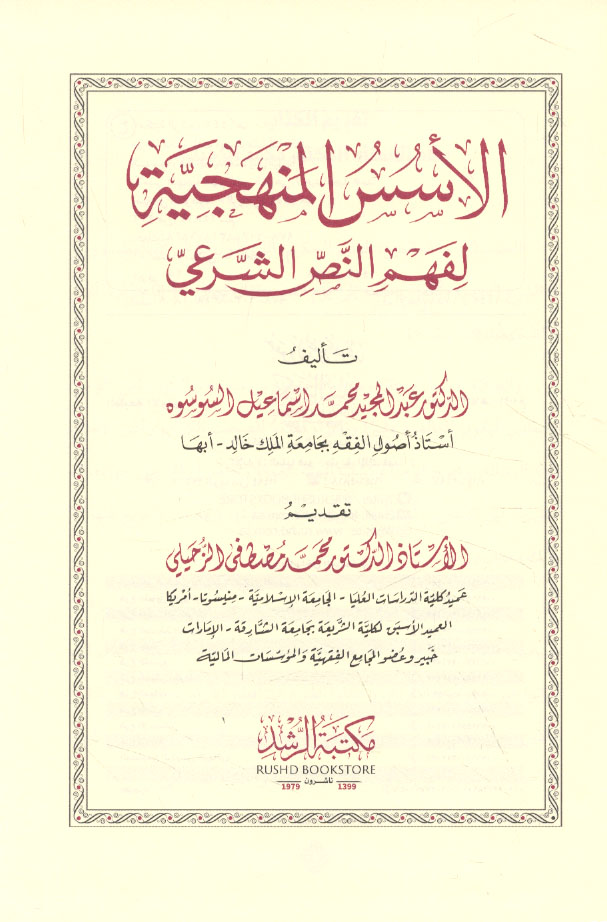 الأُسُسُ المَنهَجِيَّةِ
لِفَهْمِ النَّصِّ الشَّرعِيِّ
تَأليفُ
الدكتور عَبْد المجيد محمَّد إسْمَاعِيل السّوسُوه
أسْتَاذُ أُصُولِ الفِقْهِ بجَامِعَةِ المَلِك خَالِد - أبهَا
تقديمُ
الأسْتاذ الدّكتور محمَّد مُصْطفى الزّحيلي
عميدُ كلية الدّراسَات العُليَا - الجَامِعة الإسْلاميَّة - مِنيسُوتا - أمْريكا
العميد الأسبق لكليَّة الشّريعَة بجَامعة الشّارقة - الإمارات
خَبير وعُضو المجَامِع الفِقهيَّة وَالمؤسّسَات المَاليَّة
مَكتبَةُ الرُّشْدِ
RUSHD BOOKSTORE
ناشرون
1979 1399